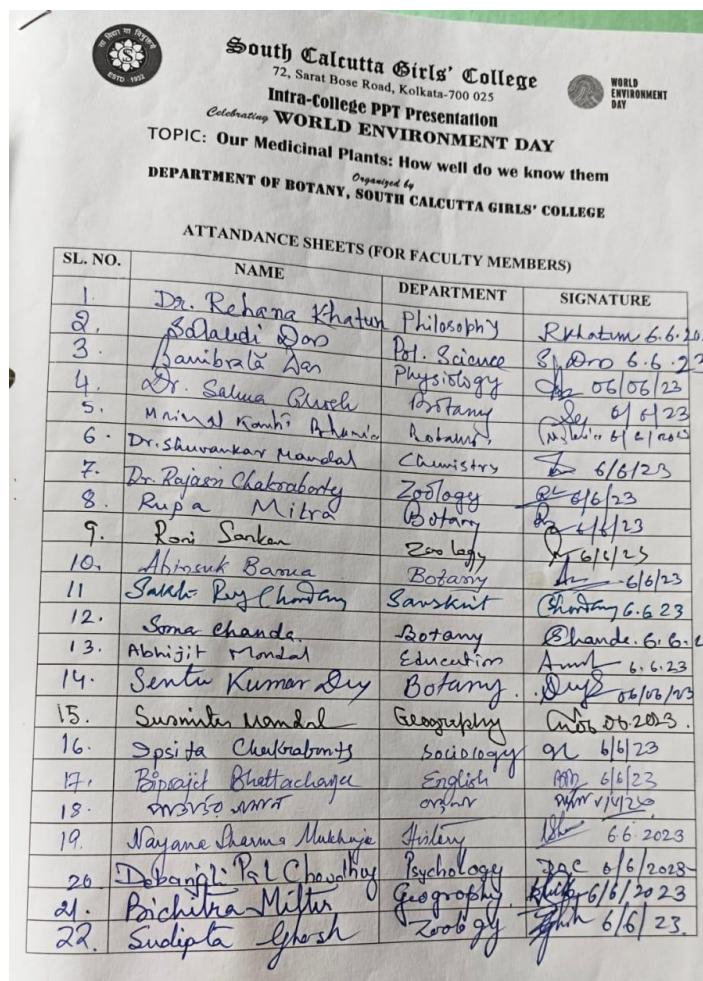 ESTD - 1932
South Calcutta Girls' College
72, Sarat Bose Road, Kolkata-700 025
WORLD
ENVIRONMENT
DAY
Intra-College PPT Presentation
Celebrating WORLD ENVIRONMENT DAY
TOPIC: Our Medicinal Plants: How well do we know them
Organized by
DEPARTMENT OF BOTANY, SOUTH CALCUTTA GIRLS' COLLEGE
ATTANDANCE SHEETS (FOR FACULTY MEMBERS)
SL. NO. NAME DEPARTMENT SIGNATURE
1. Dr. Rehana Khatun Philosophy RKhatun 6.6.20
2. Das Pol. Science S. Das 6.6.23
3. Das Physiology 06/06/23
4. Dr. Salma Botany 6/6/23
5. Kanti Botany
6. Dr. Shuvankar Mandal Chemistry 6/6/23
7. Dr. Rajasri Chakraborty Zoology 6/6/23
8. Rupa Mitra Botany 6/6/23
9. Roni Sarkar Zoology 6/6/23
10. Barua Botany 6/6/23
11 Roy Sanskrit 6.6 23
12. Soma Chanda. Botany Chanda. 6.6.2
13. Abhijit Mondal Education 6.6.23
14. Sentu Kumar Dey Botany. 06/06/23
15. Susmita Mondal Geography 06.2023.
16. Ipsita Chakraborty Sociology 6/6/23
17. Biprajit Bhattacharya English 6/6/23
18.
19. Nayana Sharma Mukherjee History 6.6.2023
20 Debanjli Pal Chowdhury Psychology DPC 6/6/2023
21. Bichitra Mitter Geography 6/6/2023
22. Sudipta Ghosh Zoology Ghosh 6/6/23.